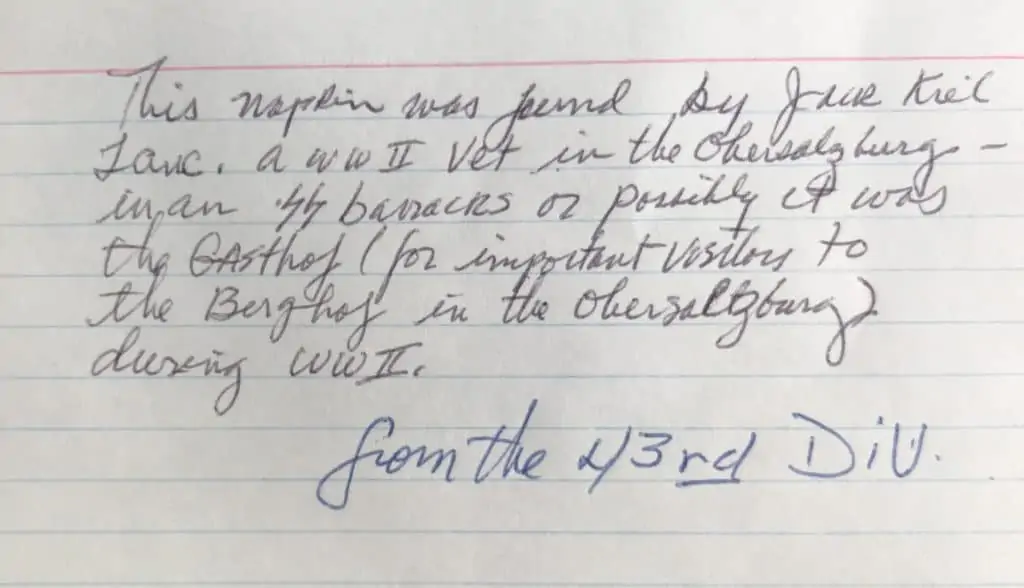 This napkin was found by Jack Kiel
Lane. a WW II Vet in the Obersalzburg -
in an SS barracks or possibly it was
the GAsthof (for important visitors to
the Berghof in the Obersaltzburg)
during WW II.
from the 43rd DiV.